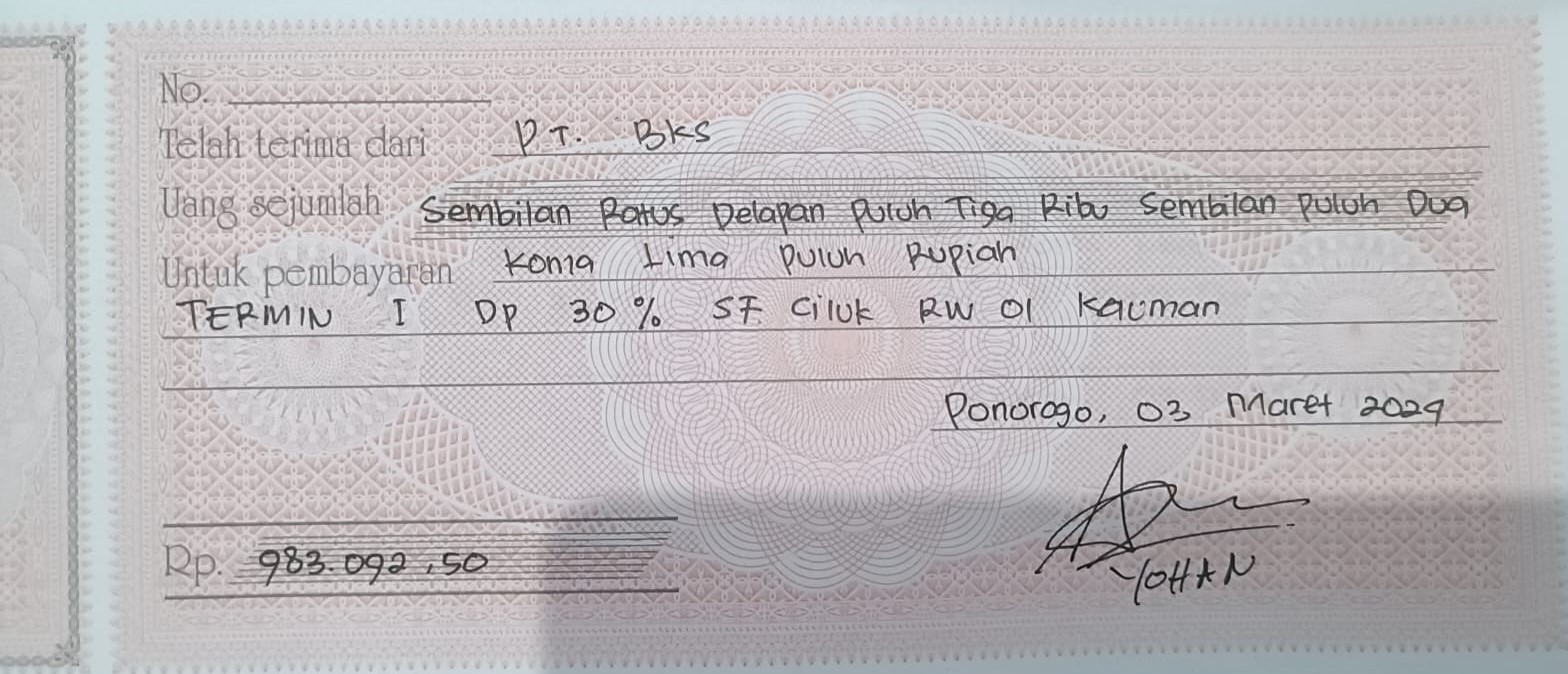 No.
Telah terima dari PT. Bks
Uang sejumlah Sembilan Ratus Delapan Puluh Tiga Ribu Sembilan Puluh Dua
Untuk pembayaran Koma Lima Puluh Rupiah
TERMIN I Dp 30% SF Ciluk RW 01 Kauman
Ponorogo, 03 Maret 2024
Rp. 983.092,50
YOHAN